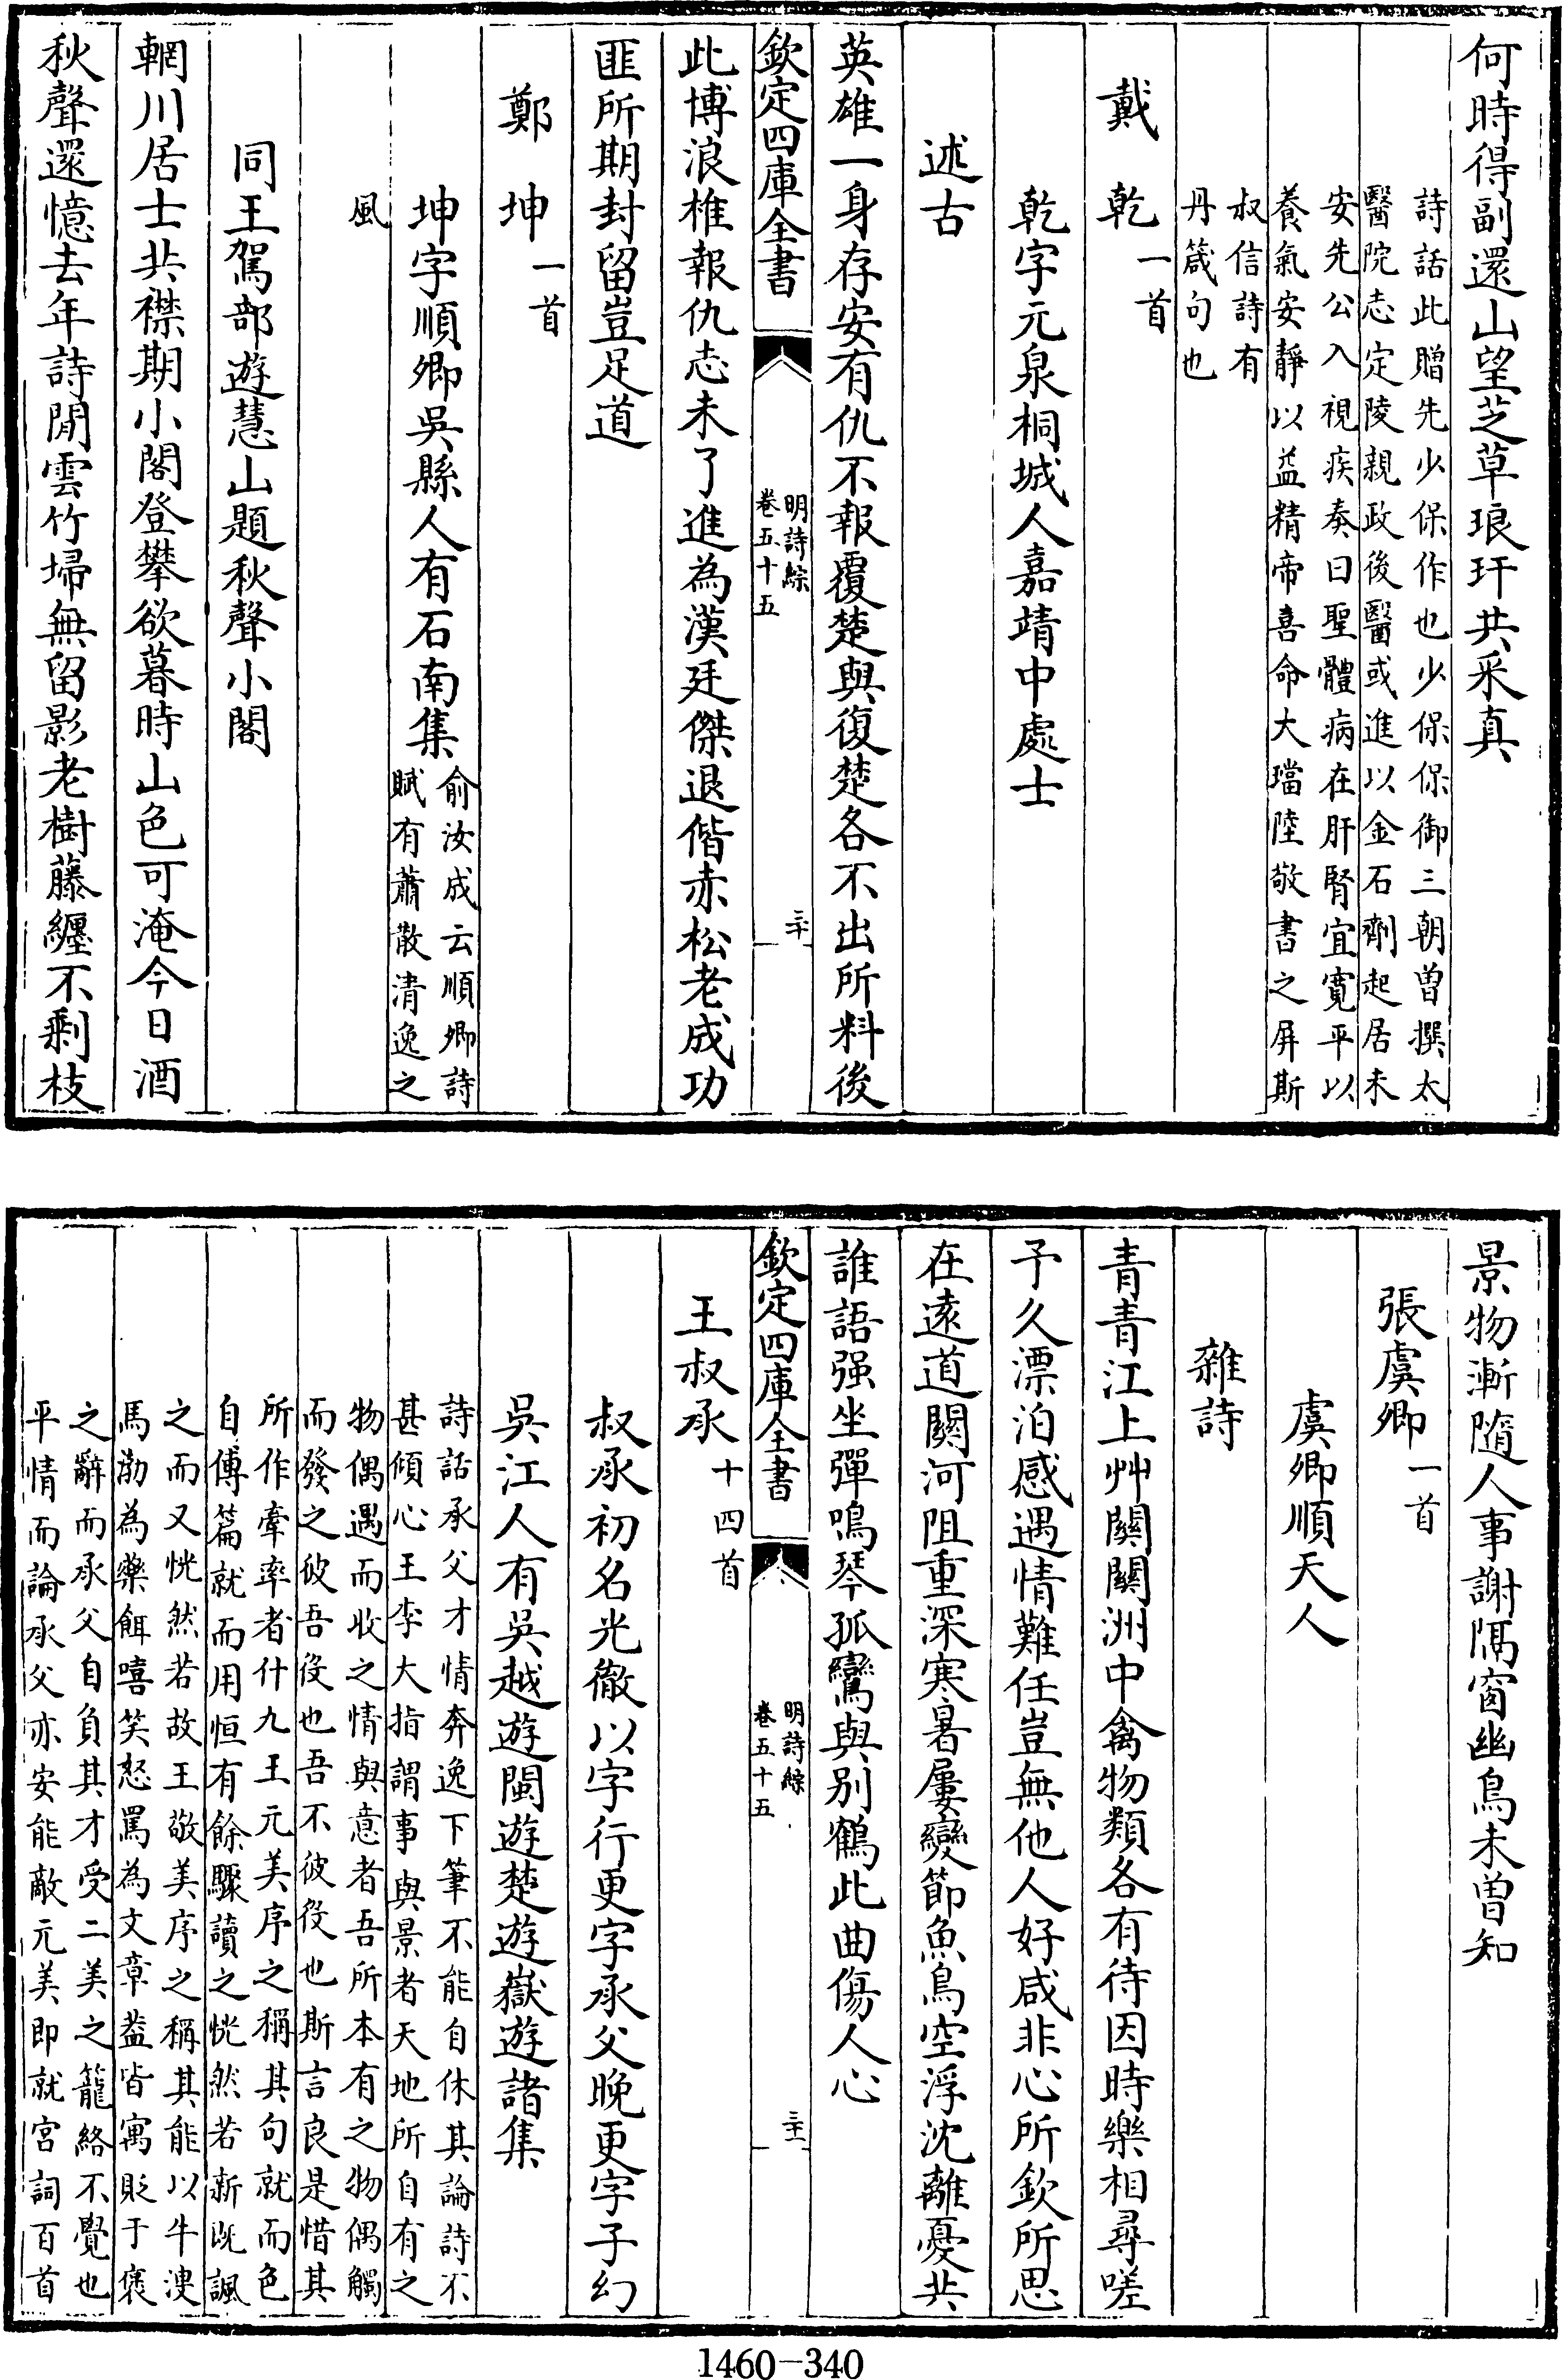 何時得副還山望芝草琅玕共采真
詩話此贈先少保作也少保保御三朝曽撰太
醫院志定陵親政後醫或進以金石劑起居未
安先公入視疾奏曰聖體病在肝腎宜寛平以
養氣安靜以益精帝喜命大璫陸敬書之屏斯
叔信詩有
丹箴句也
戴乾一首
乾字元泉桐城人嘉靖中處士
述古
英雄一身存安有仇不報覆楚與復楚各不出所料後
欽定四庫全書
明詩綜
卷五十五
三十
此博浪椎報仇志未了進為漢廷傑退偕赤松老成功
匪所期封留豈足道
鄭坤一首
坤字順卿吳縣人有石南集俞汝成云順卿詩
賦有蕭散清逸之
風
同王駕部遊慧山題秋聲小閣
輞川居士共襟期小閣登攀欲暮時山色可淹今日酒
秋聲還憶去年詩閒雲竹埽無留影老樹藤纏不剩枝
景物漸隨人事謝隔窗幽鳥未曽知
張虞卿一首
虞卿順天人
雜詩
青青江上艸關關洲中禽物類各有待因時樂相尋嗟
予久漂泊感遇情難任豈無他人好咸非心所欽所思
在遠道關河阻重深寒暑屢變節魚鳥空浮沈離憂共
誰語强坐彈鳴琴孤鸞與別鶴此曲傷人心
欽定四庫全書
明詩綜
卷五十五
三十一
王叔承十四首
叔承初名光徹以字行更字承父晚更字子幻
吳江人有吳越遊閩遊楚遊嶽遊諸集
詩話承父才情奔逸下筆不能自休其論詩不
甚傾心王李大指謂事與景者天地所自有之
物偶遇而收之情與意者吾所本有之物偶觸
而發之彼吾役也吾不彼役也斯言良是惜其
所作牽率者什九王元美序之稱其句就而色
自傅篇就而用恒有餘驟讀之恍然若新既諷
之而又恍然若故王敬美序之稱其能以牛溲
馬渤為藥餌嘻笑怒罵為文章葢皆寓貶于褒
之辭而承父自負其才受二美之籠絡不覺也
平情而論承父亦安能敵元美即就宮詞百首
1460-340